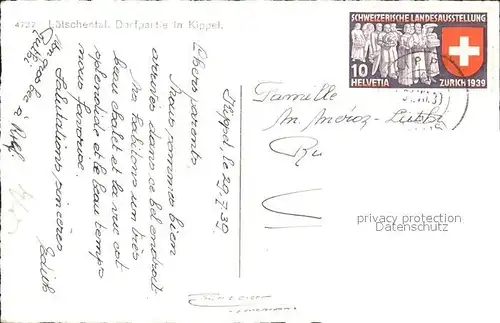 4727 Lötschental. Dorfpartie in Kippel.
SCHWEIZERISCHE LANDESAUSSTELLUNG
10
HELVETIA ZÜRICH 1939
Kippel, le 29.7.39
Chers parents,
Nous sommes bien
arrivées dans ce bel endroit.
Ns habitons un très
beau chalet et la vue est
splendide et le beau temps
nous favorise.
Salutations sincères
Edith
Famille
M. Méroz-
Ru
privacy protection
Datenschutz